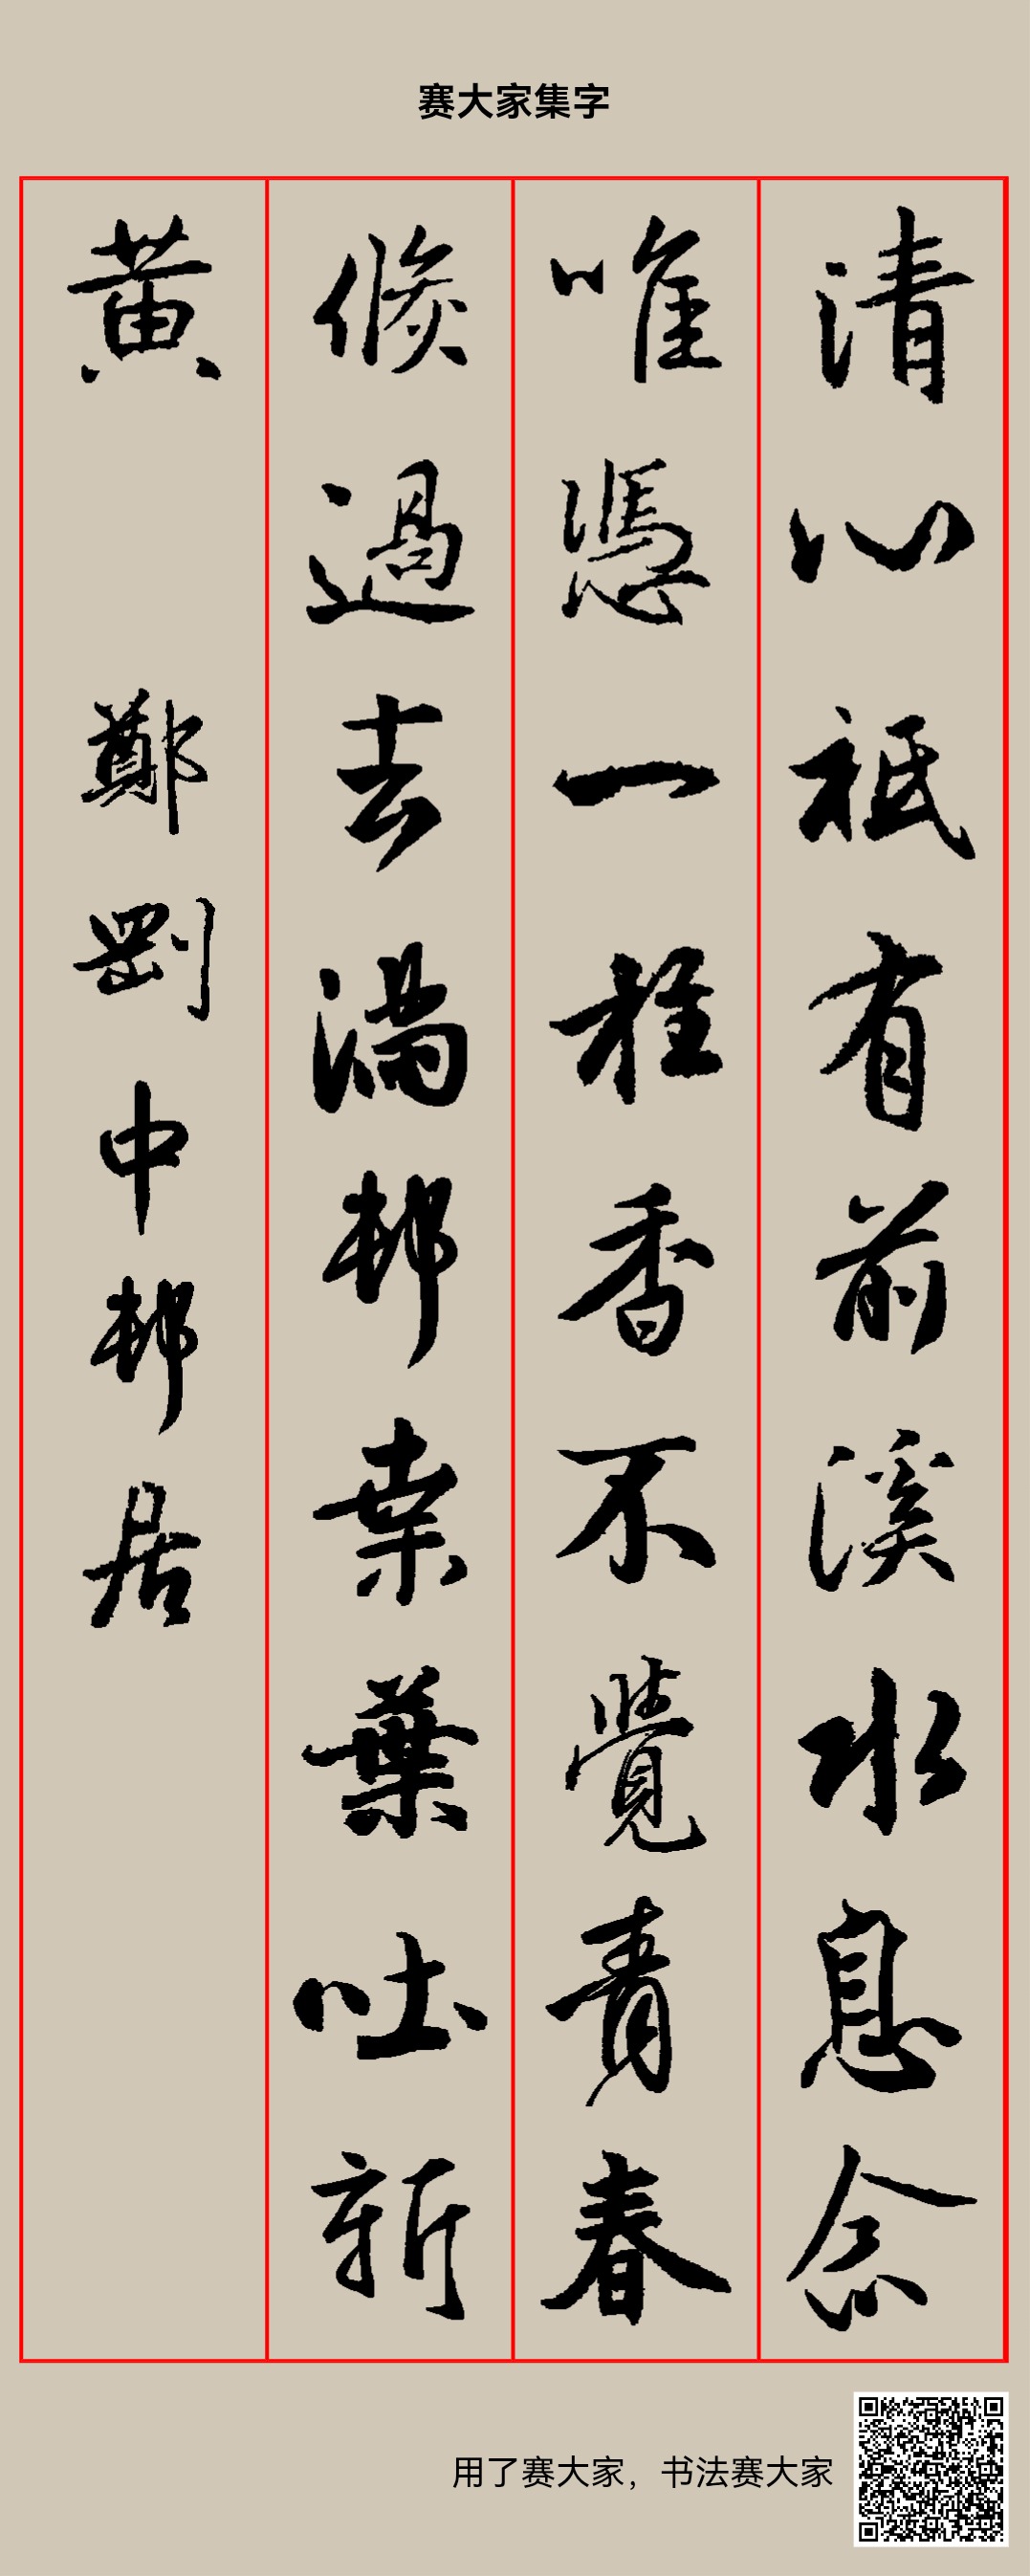 赛大家集字
清心祇有前溪水息念
唯憑一柱香不覺青春
倐過去滿邨桒葉吐新
黄 鄭剛中邨居
用了赛大家，书法赛大家